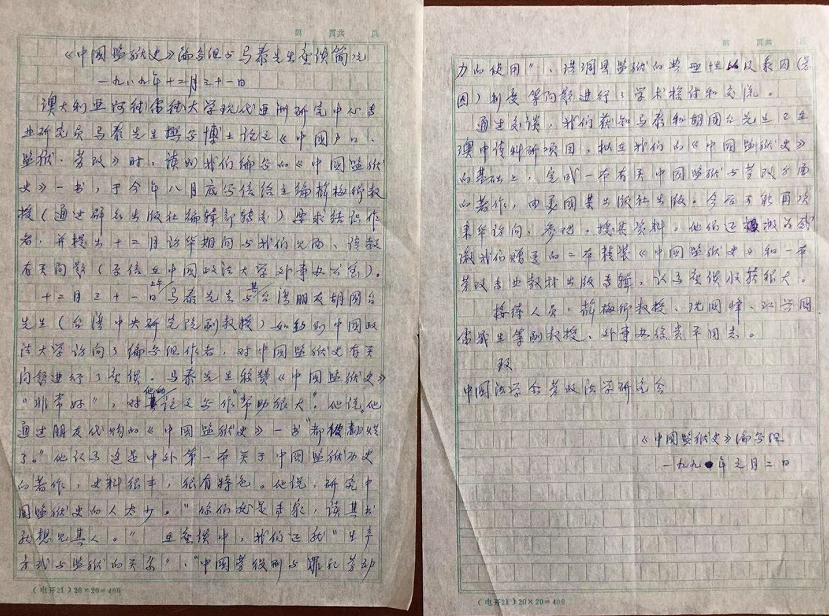 《中国监狱史》编写组与马泰先生座谈简况
一九八九年十二月三十一日
澳大利亚阿德雷德大学现代亚洲研究中心专
业研究员马泰先生撰写博士论文《中国》
监狱、劳改》时，读到我们编写的《中国监狱
史》一书，于今年八月底写信给主编薛梅卿教
授（通过群众出版社编辑部转交）要求结识作
者，并提出十二月访华期间与我们见面、谈教
有关问题（手信在中国政法大学外事办公室）。
十二月三十一日上午马泰先生与其台湾朋友胡国台
先生（台湾中央研究院副教授）如约到中国政
法大学访问了编写组作者，对中国监狱史有关
问题进行了座谈。马泰先生称赞《中国监狱史》
"非常好"，对他的论文写作"帮助很大"。他说，他
通过朋友代购的《中国监狱史》一书"都翻烂
了。"他认为这是中外第一本关于中国监狱历史
的著作，史料很丰，很有特色。他说，研究中
国监狱史的人太少。"你们好是专家，读其书
就想见其人。"在座谈中，我们还就"生产
方式与监狱的关系"、"中国劳役刑与罪犯劳动
力的使用"、强调监狱的典型性以及录囚（虑
囚）制度等问题进行了学术探讨和交流。
通过交谈，我们获知马泰和胡国台先生正在
澳申请科研项目，拟在我们的《中国监狱史》
的基础上，完成一本有关中国监狱与劳改方面
的著作，由美国某出版社出版。今后可能再次
来华访问、参观、搜集资料。他们还
激我们赠送的二本精装《中国监狱史》和一本
劳改专业教材出版专辑，认为座谈收获很大。
接待人员：薛梅卿教授、沈国峰、
副教授、外事办徐 平同志。
致
中国法学会劳改法学研究会
《中国监狱史》编写组
一九九〇年元月二日
(电开21) 20×20=400
(电开21) 20×20=400